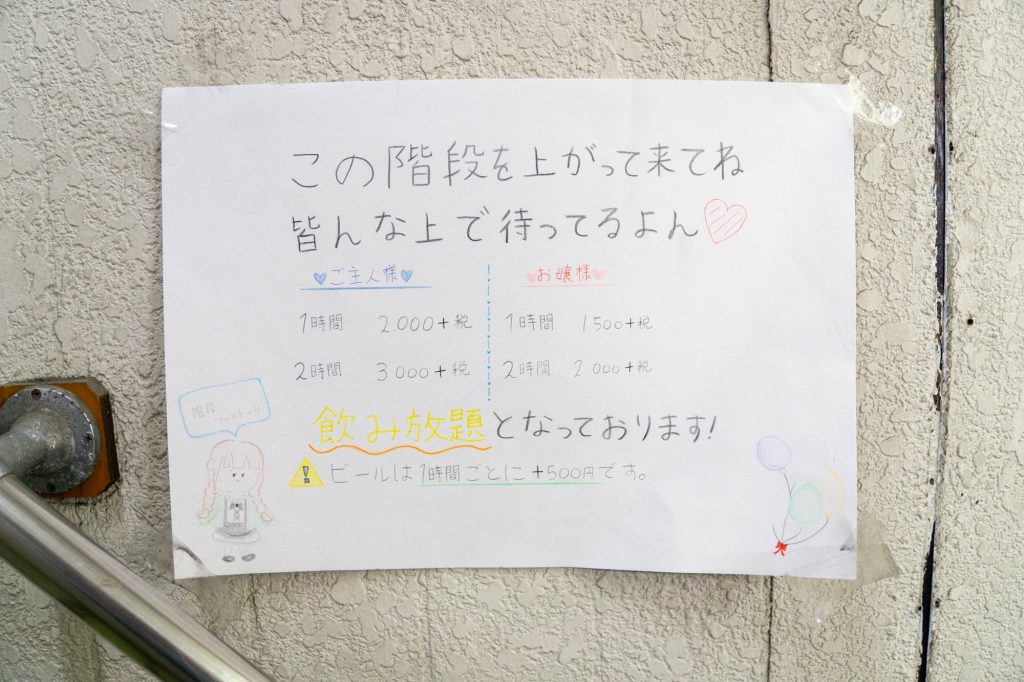 この階段を上がって来てね
皆んな上で待ってるよん
ご主人様
1時間 2.000+税
2時間 3.000+税
お嬢様
1時間 1500+税
2時間 2.000+税
飲み放題となっております!
ビールは1時間ごとに+500円です。
階段
ファイトー!!